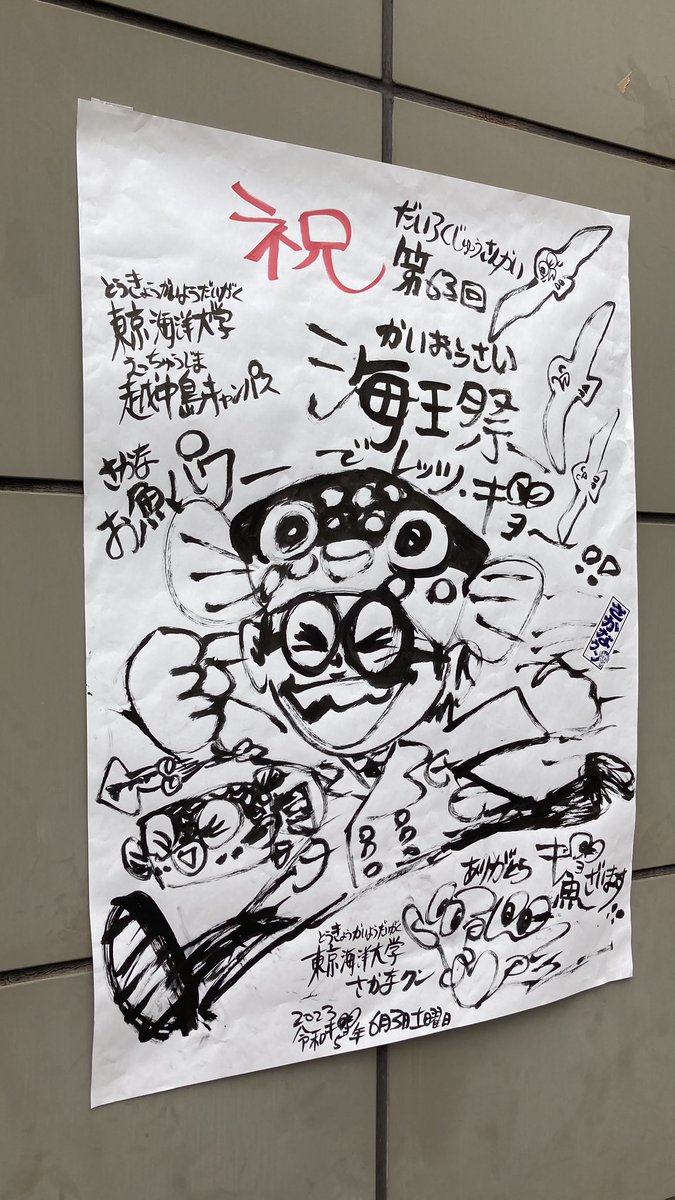 祝
だいろくじゅうさんかい
第63回
とうきょうかいようだいがく
東京海洋大学
えっちゅうじま
越中島キャンパス
かいおうさい
海王祭
さかな
お魚パワーで
レッツ・ギョ〜
ありがとう
ギョ
魚ざいます
とうきょうかいようだいがく
東京海洋大学
さかなクン
2023
令和ギョ5年6月3日土曜日
さかなクン